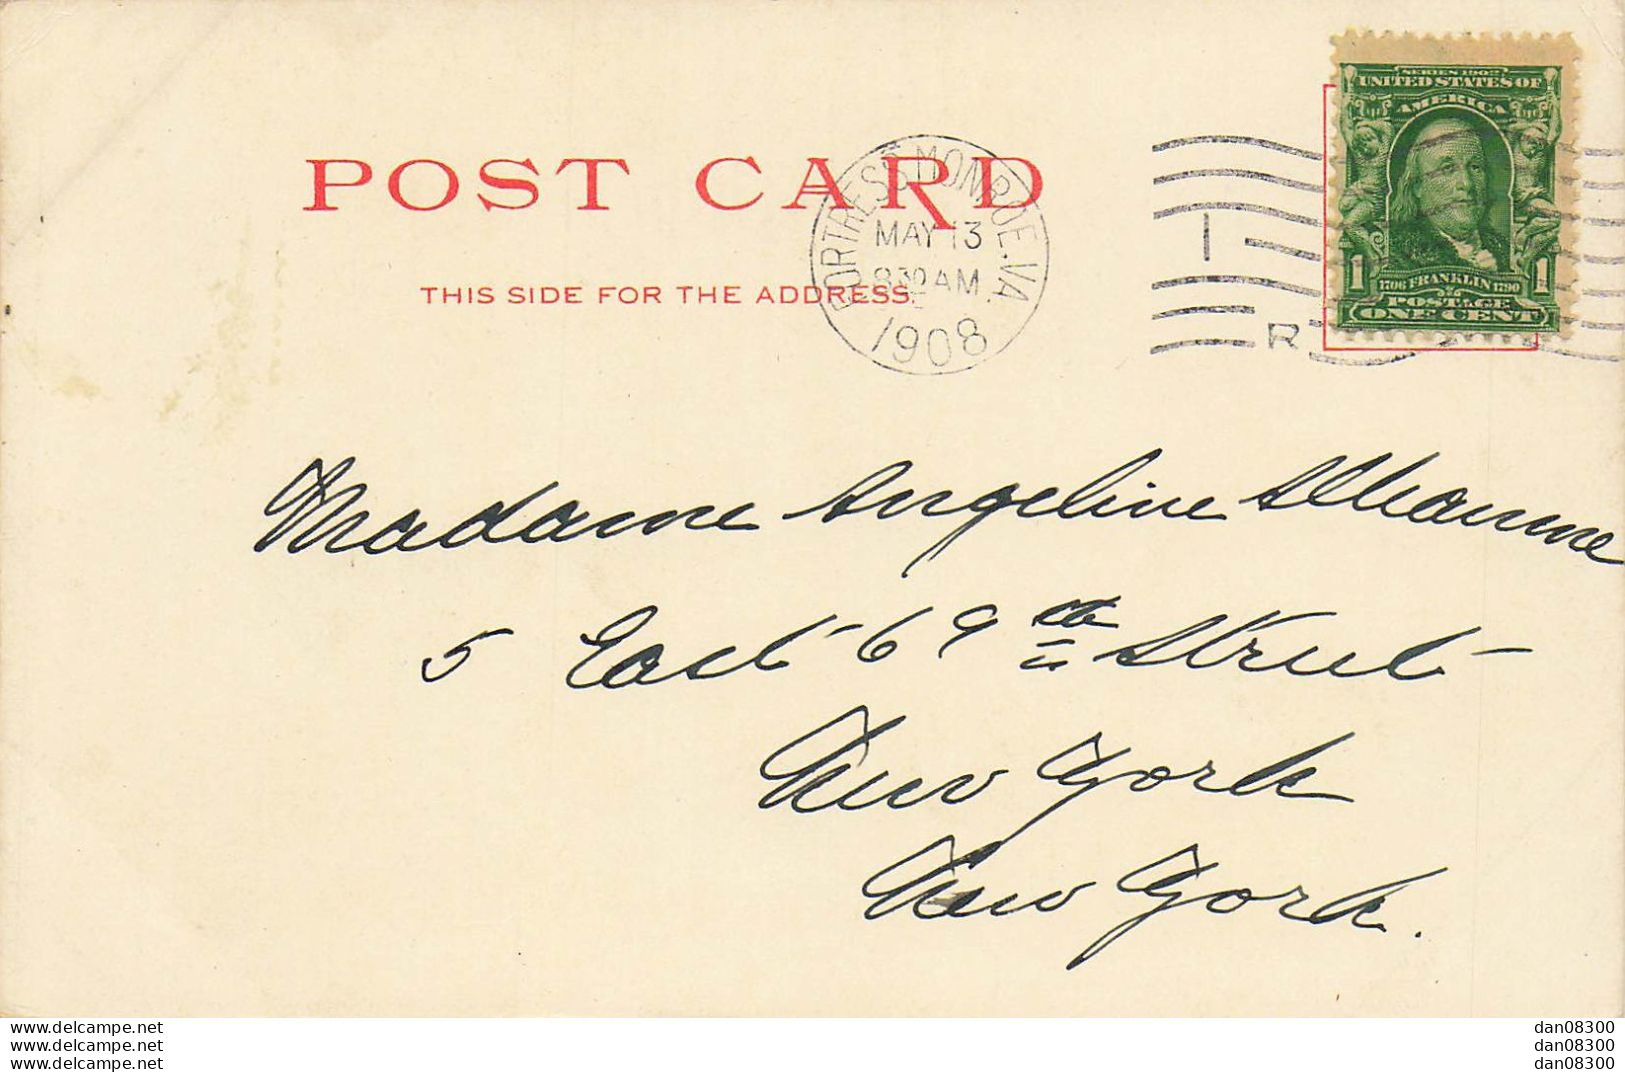 POST CARD
THIS SIDE FOR THE ADDRESS.
FORTRESS MONROE, VA.
MAY 13
8 30 AM
1908
1
R
SERIES 1902
UNITED STATES OF
AMERICA
1706 FRANKLIN 1790
1 1
POSTAGE
ONE CENT
Madame Angeline
5 East 69th Street
New York
New York.
www.delcampe.net
www.delcampe.net
www.delcampe.net
dan08300
dan08300
dan08300